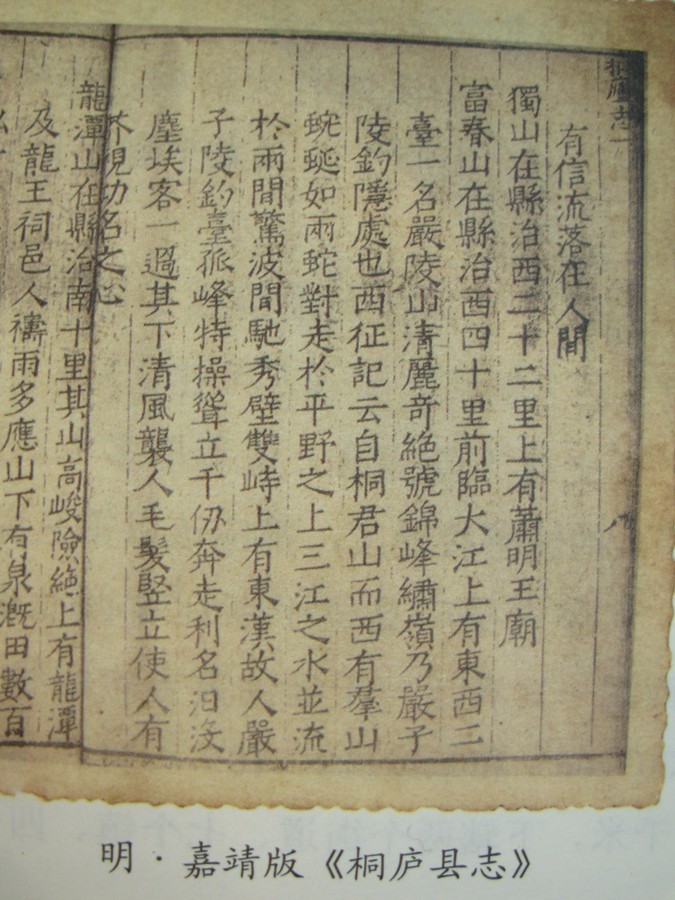 桐廬志一
有信流落在人間
獨山在縣治西二十二里上有蕭明王廟
富春山在縣治西四十里前臨大江上有東西二
臺一名嚴陵山清麗奇絶號錦峰繡嶺乃嚴子
陵釣隱處也西征記云自桐君山而西有羣山
蜿蜒如兩蛇對走於平野之上三江之水並流
於兩間驚波間馳秀壁雙峙上有東漢故人嚴
子陵釣臺孤峰特操聳立千仞奔走利名汩没
塵埃客一過其下清風襲人毛髮竪立使人有
芥視功名之心
龍潭山在縣治南十里其山高峻險絶上有龍潭
及龍王祠邑人禱雨多應山下有泉溉田數百
明·嘉靖版《桐庐县志》